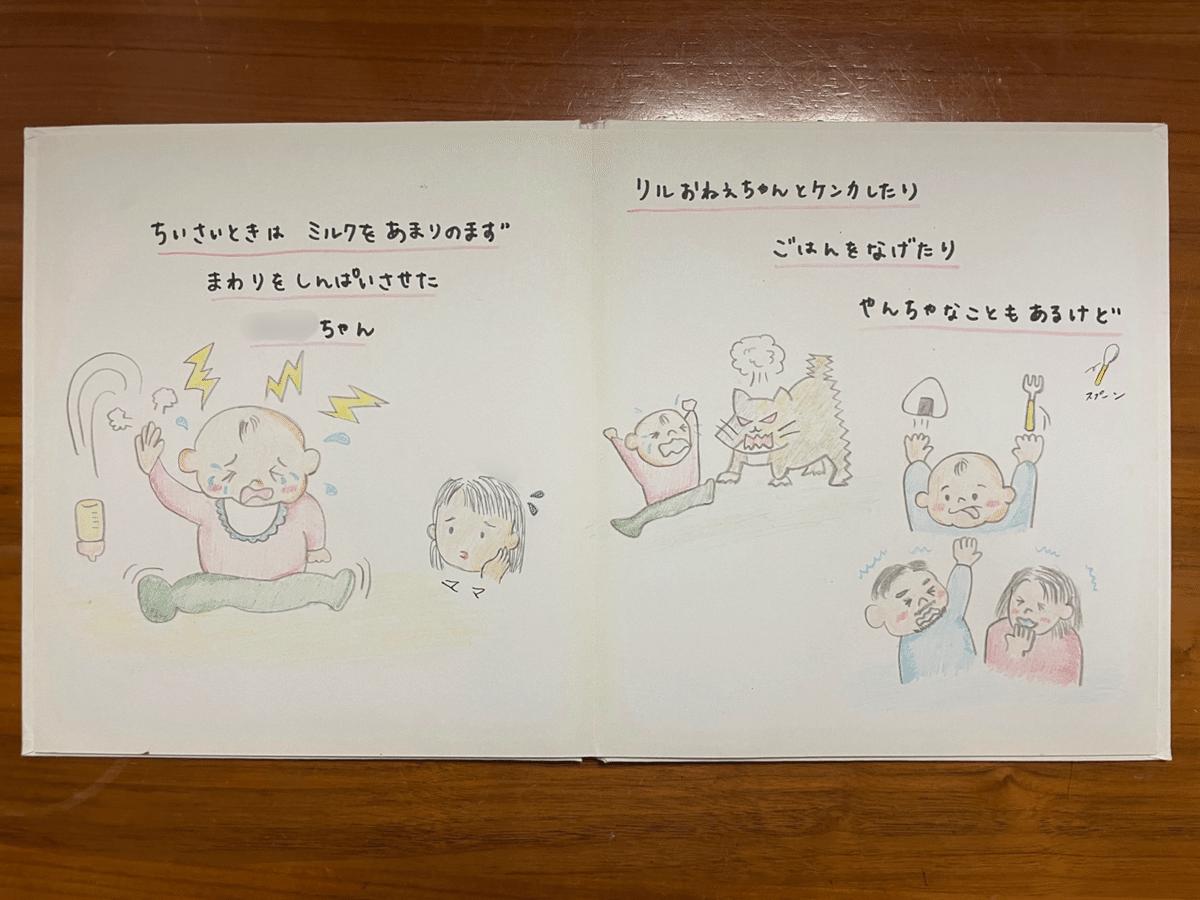 ちいさいときは ミルクを あまりのまず
まわりを しんぱいさせた
ちゃん
ママ
リルおねえちゃんとケンカしたり
ごはんをなげたり
やんちゃなことも あるけど
スプーン